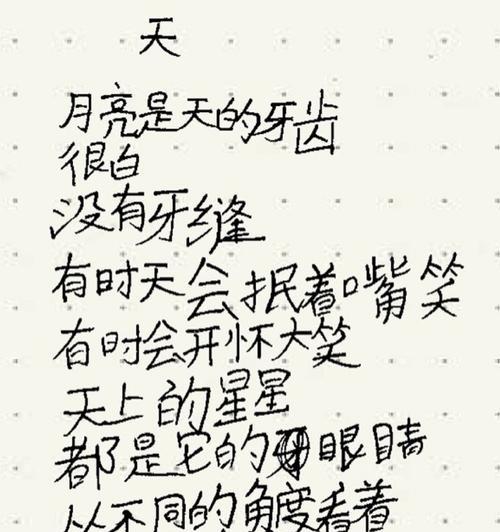 天
月亮是天的牙齿
很白
没有牙缝
有时天会抿着嘴笑
有时会开怀大笑
天上的星星
都是它的眼睛
从不同的角度看着